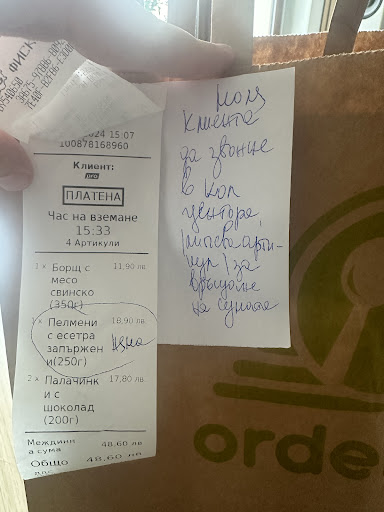 2024 15:07
100878168960
Клиент:
pro
ПЛАТЕНА
Час на вземане
15:33
4 Артикули
1× Борщ с 11.90 лв
месо
свинско
(350г)
1× Пелмени 18,90 лв
с есетра
запържен няма
и(250г)
2× Палачинк 17,80 лв
и с
шоколад
(200г)
Междинн 48.60 лв
а сума
Общо 48.60 лв
моля
клиента
да звонне
в кол
центора
за
връщане
на сумата
orde